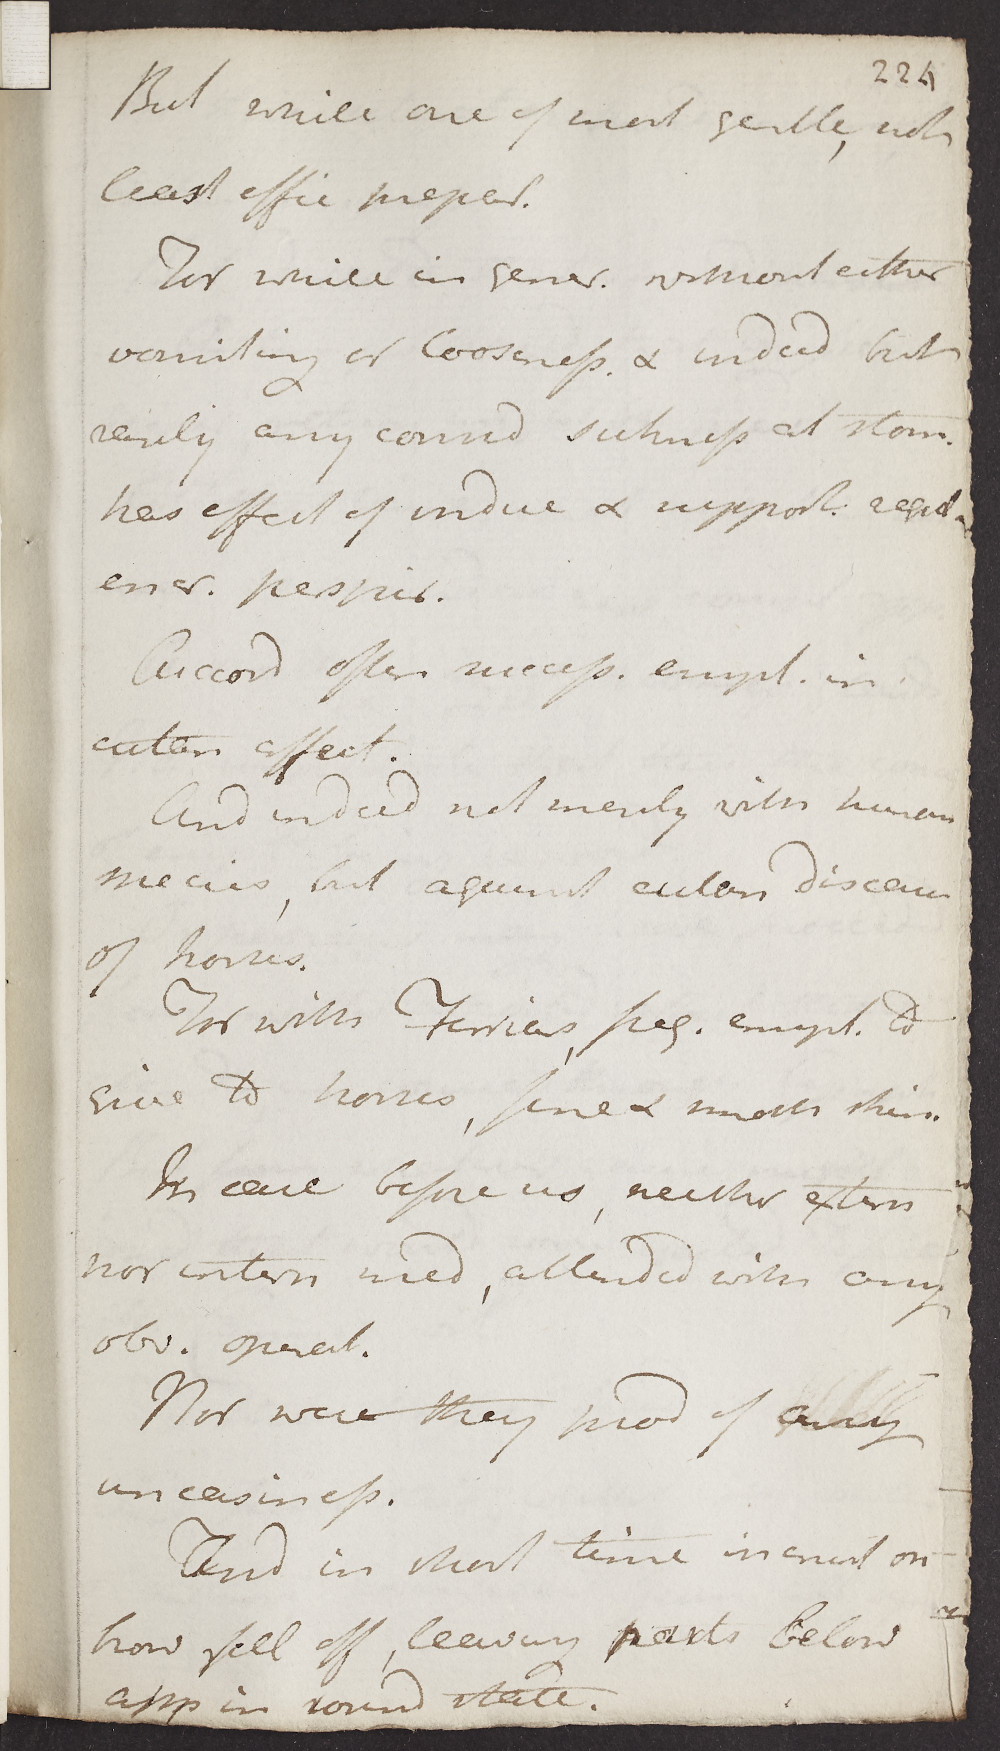 224
But while one of most gentle, not
least effic prepar.
For while in gener. without either
vomiting or Looseness. & indeed but
rarely any consid sickness at stom.
has effect of induc & support. regul
ener. perspir.
Accord often success. empl. in
cutan affect.
And indeed not merely with human
species, but against cutan diseases
of horses.
For with Ferriers, freq. empl. to
give to horses, fine & smooth skin.
In case before us, neither extern
nor intern med, attended with any
obv. operat.
Nor were they prod of any
uneasiness.
And in short time incrust on
brow fell off, leaving parts below
app in sound state.